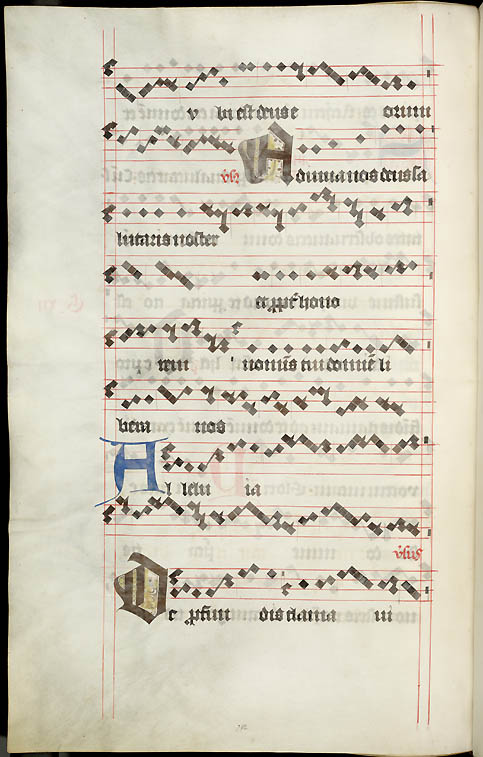 v bi est deus e orum
vs Adiuua nos deus sa
lutaris noster
et ppt hono
rem nominis tui domine li
bera nos
Al lelu ia
vsus
De pfun dis clama ui